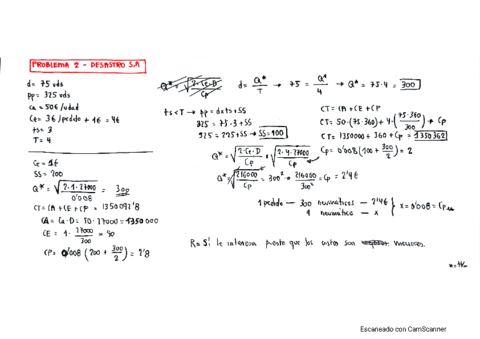 PROBLEMA 2 - DESASTRO S.A
d = 75 uds
pp = 325 uds
Ca = 50€/udad
Ce = 3€/pedido + 1€ = 4€
ts = 3
T = 4
Ce = 1€
SS = 200
Q* = √(2·1·27000 / 0'008) = 300
CT = CA + CE + CP = 1350092'8
CA = Ca·D = 50·27000 = 1350000
CE = 1 · 27000/300 = 90
CP = 0'008 (200 + 300/2) = 2'8
Q* = √(2·Ce·D / Cp)
d = Q*/T → 75 = Q*/4 → Q* = 75·4 = 300
ts < T → pp = d×ts + SS
325 = 75·3 + SS
325 = 225 + SS → SS = 100
CT = CA + CE + CP
CT = 50·(75·360) + 4·(75·360/300) + Cp
CT = 1350000 + 360 + Cp = 1350362
Cp = 0'008 (100 + 300/2) = 2
Q* = √(2·Ce·D / Cp) = √(2·4·27000 / Cp)
Q* = √(216000 / Cp) = 300² → 216000/300² = Cp = 2'4€
1 pedido — 300 neumáticos — 2'4€
1 neumático — x
x = 0'008 = Cp
R = Sí le interesa puesto que los costes son menores.